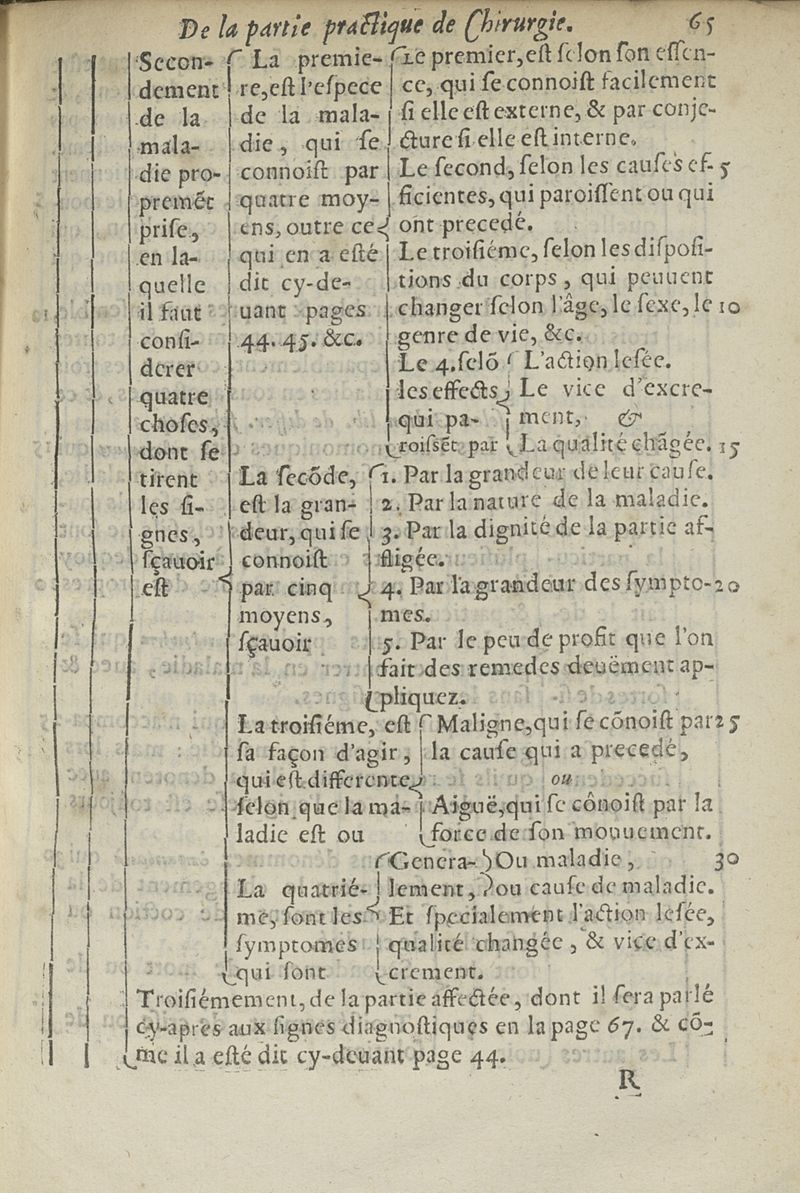 De la partie practique de Chirurgie. 65
Secon-
dement
de la
mala-
die pro-
premẽt
prise,
en la-
quelle
il faut
consi-
derer
quatre
choses,
dont se
tirent
les si-
gnes,
sçauoir
est
La premie-
re, est l'espece
de la mala-
die, qui se
connoist par
quatre moy-
ens, outre ce
qui en a esté
dit cy-de-
uant pages
44. 45. &c.
Le premier, est selon son essen-
ce, qui se connoist facilement
si elle est externe, & par conje-
cture si elle est interne.
Le second, selon les causes ef- 5
ficientes, qui paroissent ou qui
ont precedé.
Le troisiéme, selon les disposi-
tions du corps, qui peuuent
changer selon l'âge, le sexe, le 10
genre de vie, &c.
Le 4. selõ
les effects
qui pa-
roissẽt par
L'action lesée.
Le vice d'excre-
ment, &
La qualité chãgée. 15
La secõde,
est la gran-
deur, qui se
connoist
par cinq
moyens,
sçauoir
1. Par la grandeur de leur cause.
2. Par la nature de la maladie.
3. Par la dignité de la partie af-
fligée.
4. Par la grandeur des sympto- 20
mes.
5. Par le peu de profit que l'on
fait des remedes deuëment ap-
pliquez.
La troisiéme, est
sa façon d'agir,
qui est differente
selon que la ma-
ladie est ou
Maligne, qui se cõnoist par 25
la cause qui a precedé,
ou
Aiguë, qui se cõnoist par la
force de son mouuement.
La quatrié-
me, sont les
symptomes
qui sont
Genera-
lement,
Ou maladie, 30
ou cause de maladie.
Et specialement l'action lesée,
qualité changée, & vice d'ex-
crement.
Troisiémement, de la partie affectée, dont il sera parlé
cy-apres aux signes diagnostiques en la page 67. & cõ-
me il a esté dit cy-deuant page 44.
R